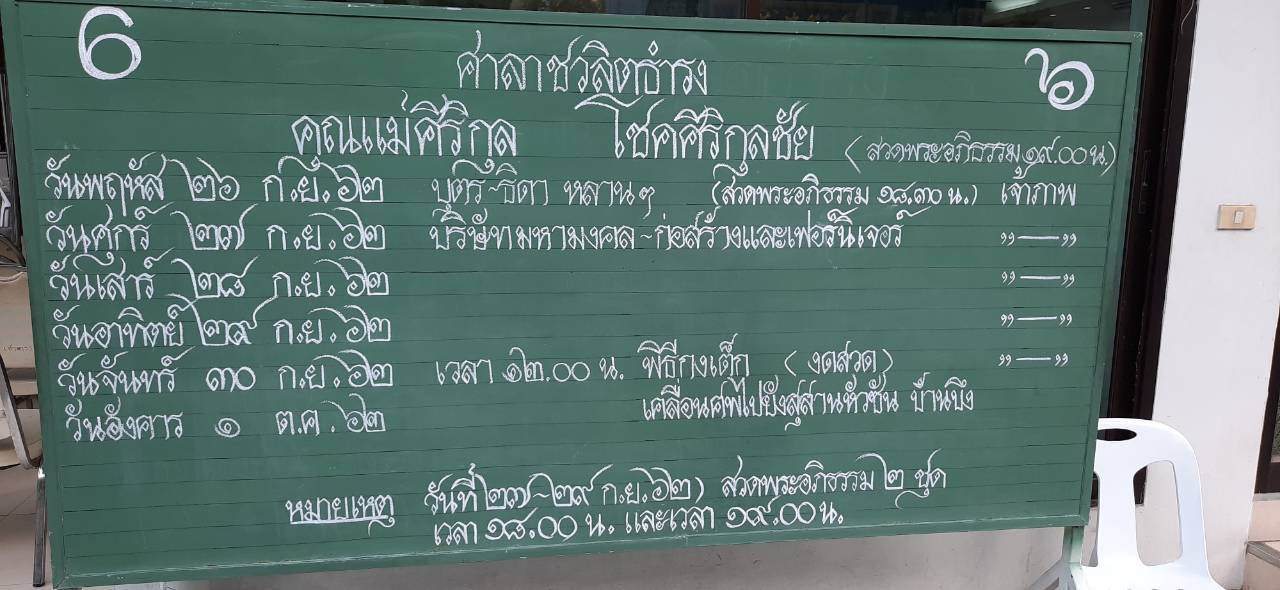 6 ศาลาชวลิตธำรง ๖
คุณแม่ศิริกุล โชคศิริกุลชัย (สวดพระอภิธรรม ๑๙.๐๐ น.)
วันพฤหัส ๒๖ ก.ย. ๖๒ บุตร-ธิดา หลานๆ (สวดพระอภิธรรม ๑๘.๓๐ น.) เจ้าภาพ
วันศุกร์ ๒๗ ก.ย. ๖๒ บริษัทมหามงคล-ก่อสร้างและเฟอร์นิเจอร์ ,,—,,
วันเสาร์ ๒๘ ก.ย. ๖๒ ,,—,,
วันอาทิตย์ ๒๙ ก.ย. ๖๒ ,,—,,
วันจันทร์ ๓๐ ก.ย. ๖๒ เวลา ๑๒.๐๐ น. พิธีกงเต็ก (งดสวด) ,,—,,
วันอังคาร ๑ ต.ค. ๖๒ เคลื่อนศพไปยังสุสานหัวชัน บ้านบึง
หมายเหตุ วันที่ ๒๗-๒๙ ก.ย. ๖๒) สวดพระอภิธรรม ๒ ชุด
เวลา ๑๘.๐๐ น. และเวลา ๑๙.๐๐ น.